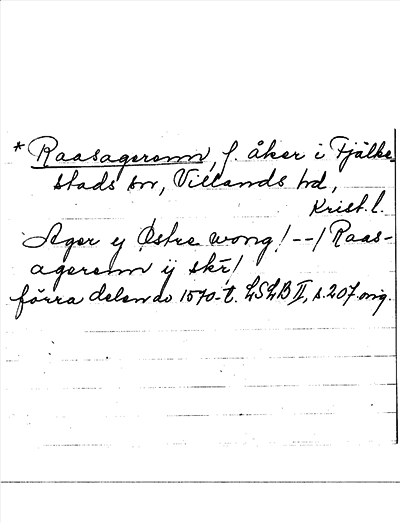 * Raasagerenn, f. åker i Fjälke-
stads sn, Villands hd,
Krist. l.
Ager ij Østre wong! --/ Raas-
agerenn ij skr/
förra delen av 1570-t. LSLB II, s. 207. orig.